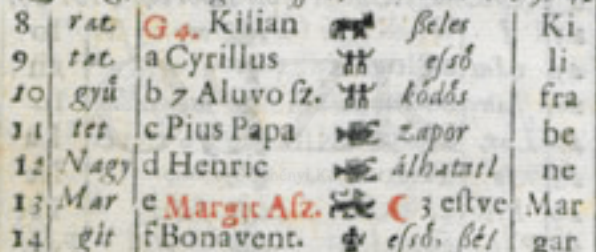 8 rat G 4. Kilian ßeles Ki
9 tat a Cyrillus eſső li
10 gyű b 7 Aluvo ſz. ködös fra
11 tet c Pius Papa zapor be
12 Nagy d Henric álhatatl ne
13 Mar e Margit Aſz. ☾ 3 eſtve Mar
14 git f Bonavent. eſső, ßél gar